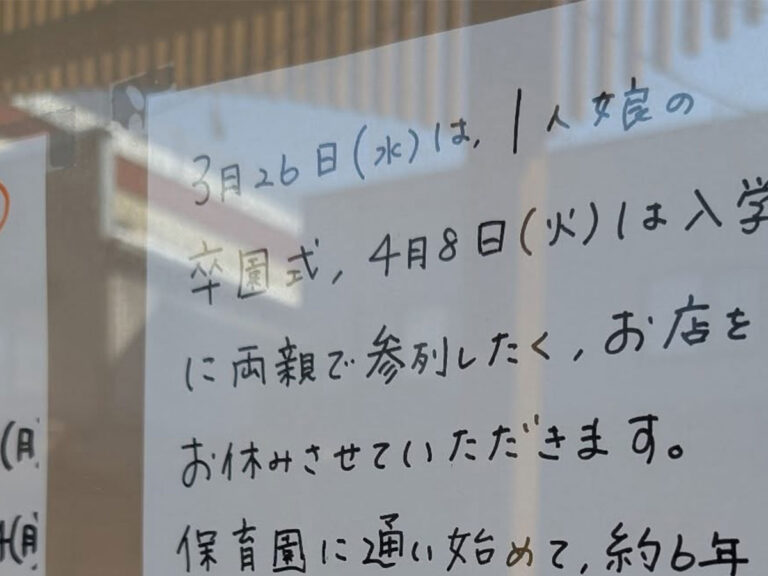 3月26日(水)は、1人娘の
卒園式、4月8日(火)は入学
に両親で参列したく、お店を
お休みさせていただきます。
保育園に通い始めて、約6年
(月)
(月)